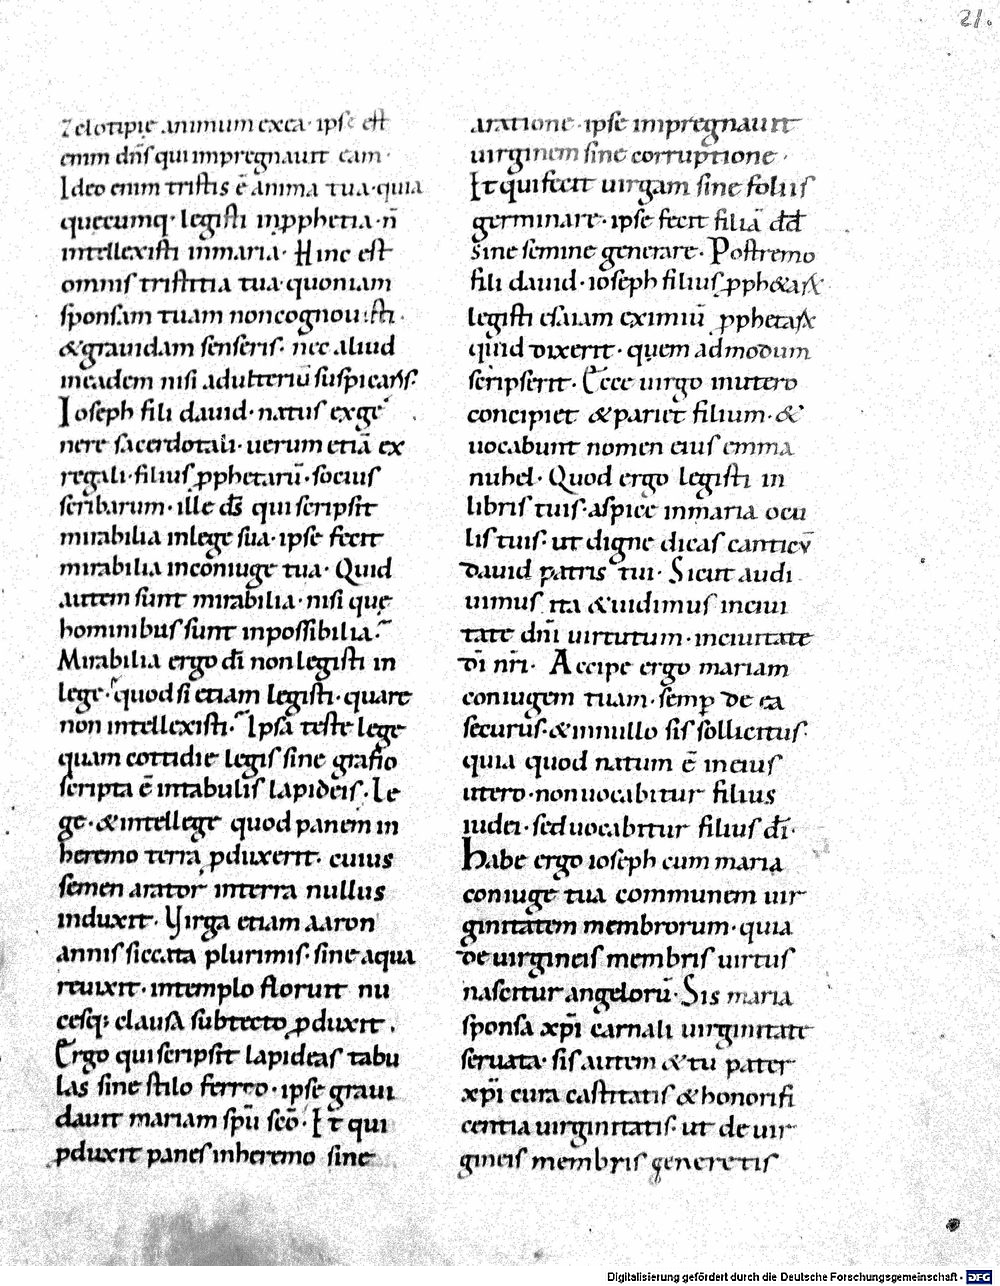 21.
Zelotipię animum exca· ipse est
enim dñs qui impregnauit eam·
Ideo enim tristis ē anima tua·quia
quęcumq· legisti inpphetia·ñ
intellexisti inmaria· Hinc est
omnis tristitia tua·quoniam
sponsam tuam noncognouisti·
&grauidam senseris· nec aliud
ineadem nisi adulteriū suspicaris·
Ioseph fili dauid·natus exge
nere sacerdotali·uerum etiā ex
regali·filius pphetarū·socius
scribarum·ille ds̄ qui scripsit
mirabilia inlege sua·ipse fecit
mirabilia inconiuge tua· Quid
autem sunt mirabilia·nisi quę
hominibus sunt inpossibilia·
Mirabilia ergo dī nonlegisti in
lege· quodsi etiam legisti·quare
non intellexisti· Ipsā teste lege
quam cottidie legis sine grafio
scripta ē intabulis lapideis·Le
ge·&intellege quod panem in
heremo terra pduxerit· cuius
semen arator interra nullus
induxit· Virga etiam aaron
annis siccata plurimis·sine aqua
reuixit·intemplo floruit nu
cesq; clausa subtecto pduxit·
Ergo qui scripsit lapideas tabu
las sine stilo ferreo·ipse graui
dauit mariam spū scō·Et qui
pduxit panes inheremo sine
aratione·ipse impregnauit
uirginem sine corruptione·
Et qui fecit uirgam sine foliis
germinare·ipse fecit filiā dd̄
sine semine generare·Postremo
fili dauid·ioseph filius pph&aꝝ
legisti esaiam eximiū pphetaꝝ
quid dixerit·quem admodum
scripserit·Ecce uirgo inutero
concipiet &pariet filium·&
uocabunt nomen eius emma
nuhel· Quod ergo legisti in
libris tuis·aspice inmaria ocu
lis tuis·ut digne dicas canticū
dauid patris tui· Sicut audi
uimus ita &uidimus inciui
tate dn̄i uirtutum·inciuitate
dī nr̄i· Accipe ergo mariam
coniugem tuam·semp de ea
securus·&innullo sis sollicitus·
quia quod natum ē ineius
utero·nonuocabitur filius
iudei·seduocabitur filius dī·
habe ergo ioseph cum maria
coniuge tua communem uir
ginitatem membrorum·quia
de uirgineis membris uirtus
nascitur angelorū·Sis maria
sponsa xp̄i carnali uirginitate
seruata·sis autem &tu pater
xp̄i cura castitatis &honorifi
centia uirginitatis·ut de uir
gineis membris generetis
Digitalisierung gefördert durch die Deutsche Forschungsgemeinschaft - DFG